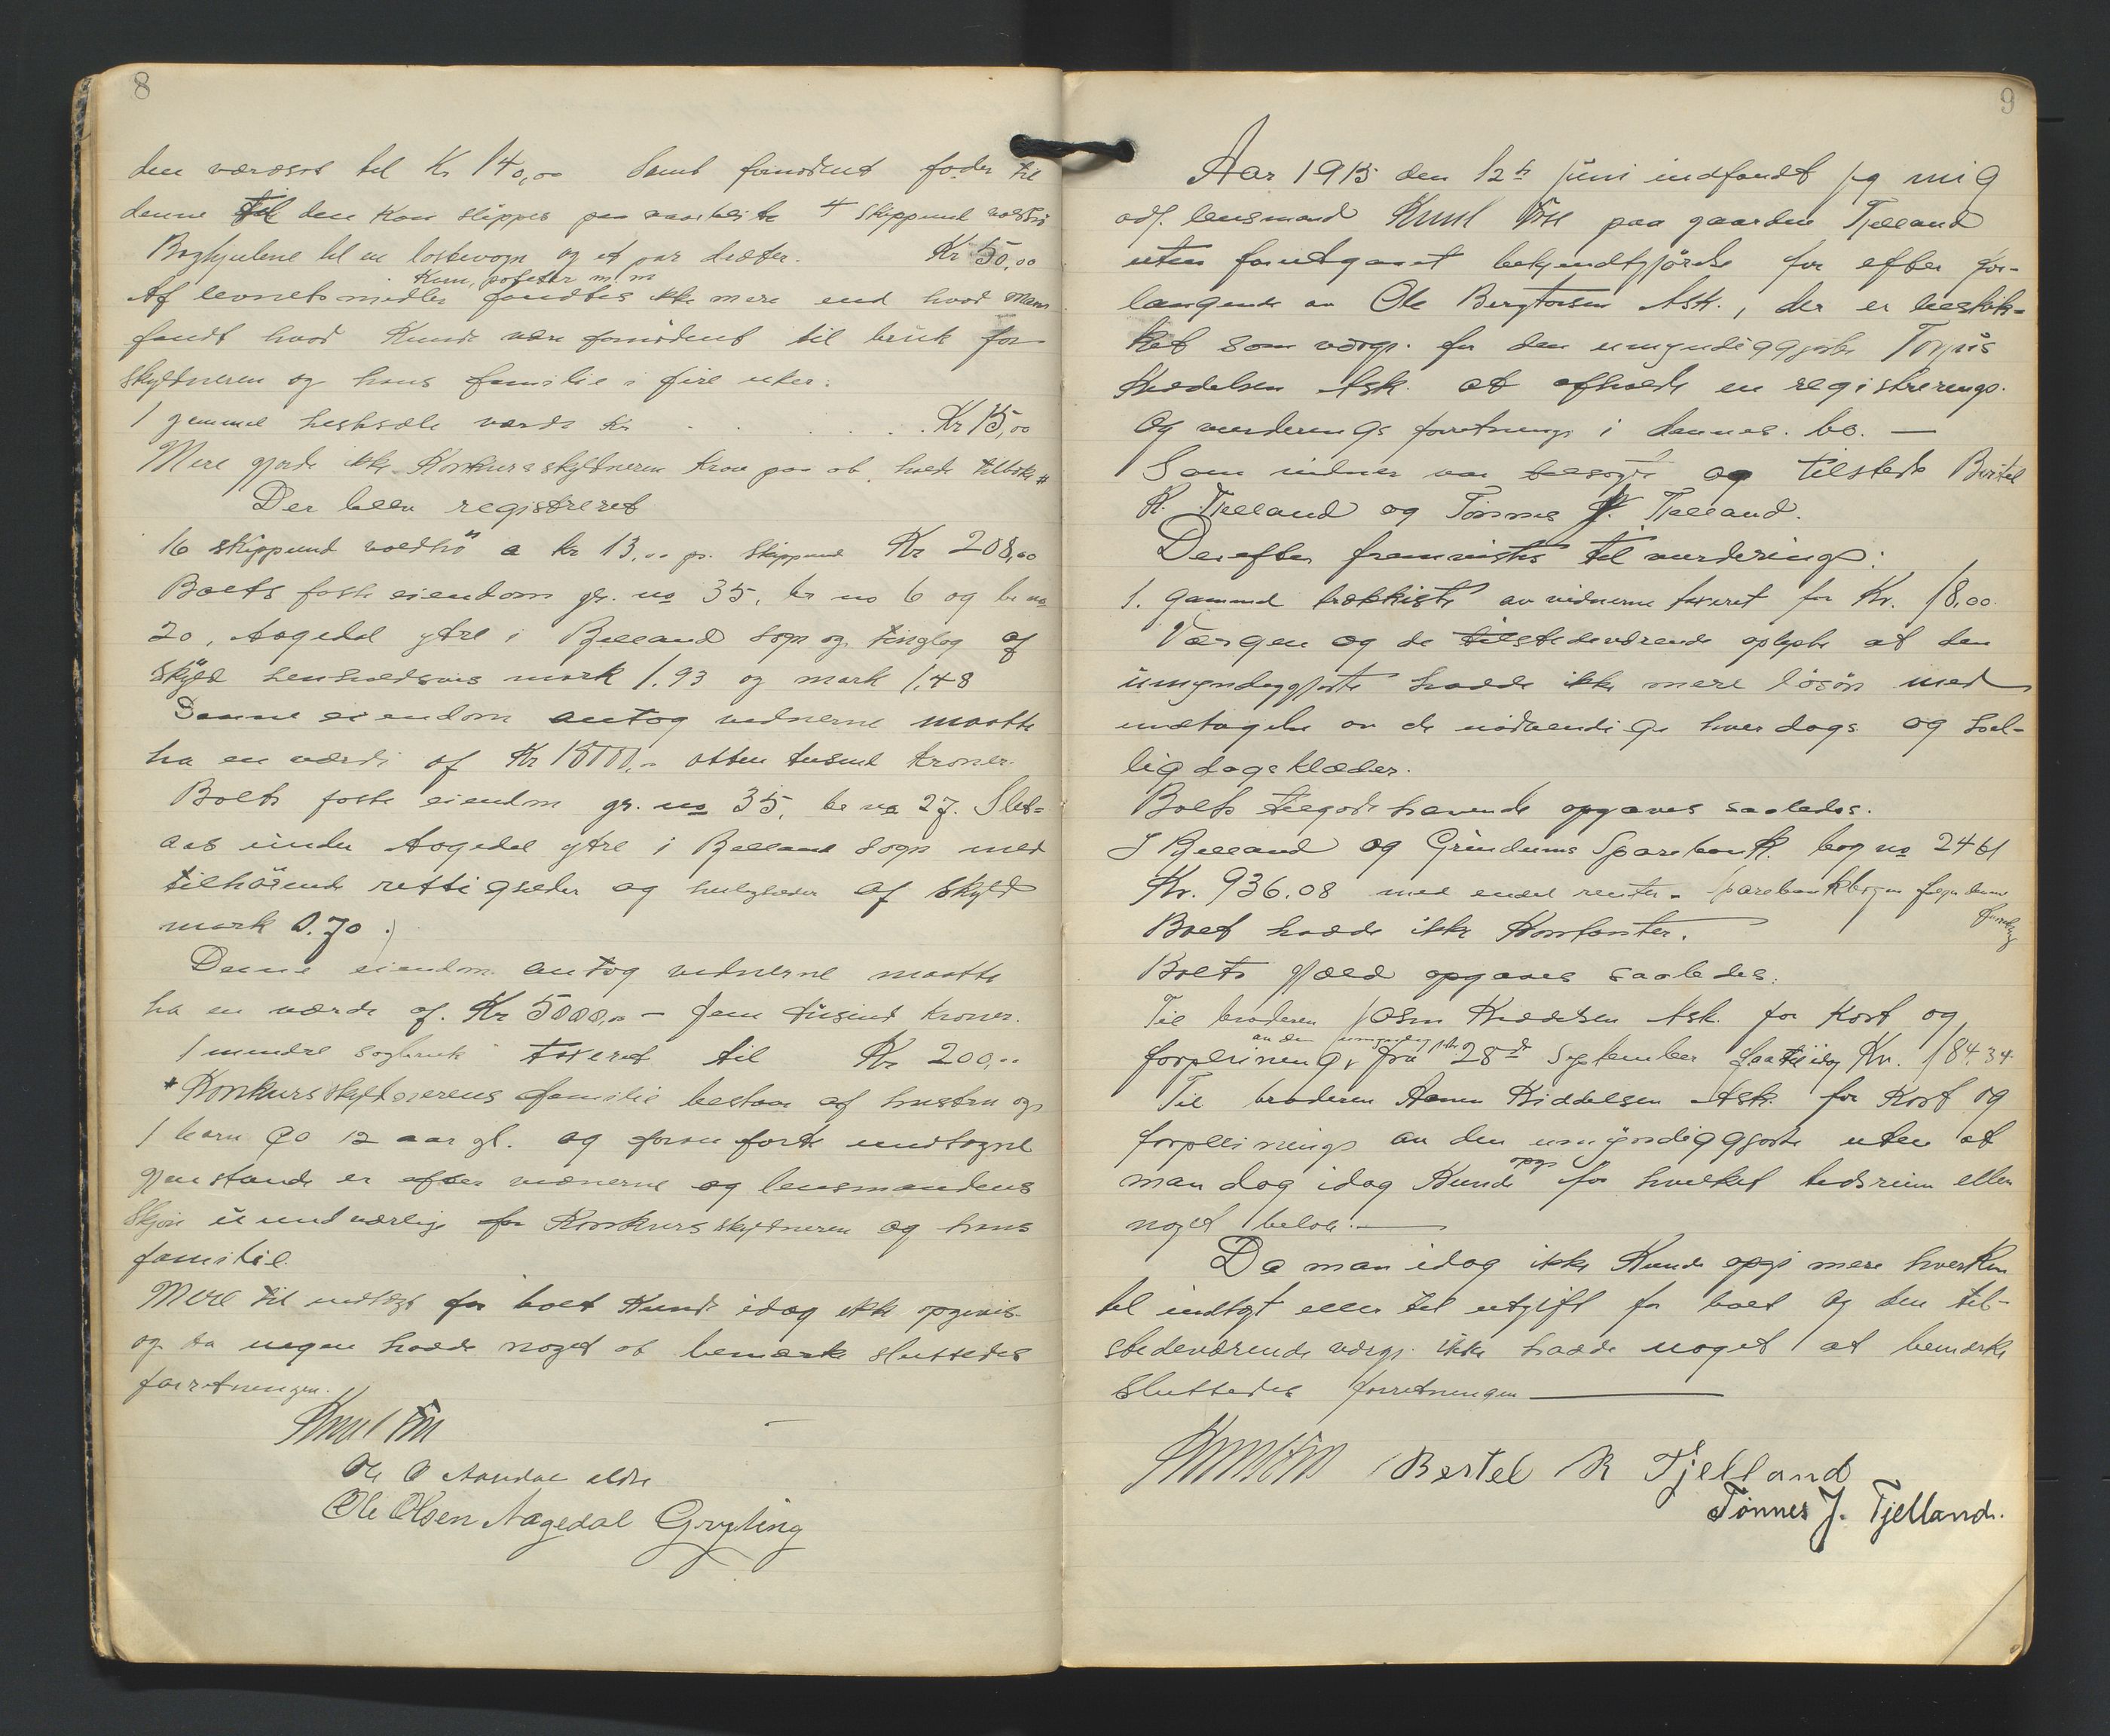 8
den værdsat til Kr 140,00 Samt fornødent foder til
denne til den kan slippes paa vaarbeite 4 skippund voldhø
Baghjulene til en lastevogn og et par dræter. Kr 50,00
Korn, poteter m.m
Af levnetsmidler fandtes ikke mere end hvad man
fandt hvad kunde være fornødent til bruk for
skyldneren og hans familie i fire uker.
1 gammel hestesæle værdi kr . . . . . Kr 15,00
Mere gjorde ikke Konkursskyldneren krav paa at holde tilbake #
Der blev registreret
16 skippund voldhø a kr 13,00 pr. skippund Kr 208,00
Boets faste eiendom gr. no 35, br no 6 og br no
20, Aagedal ytre i Bjelland sogn og tinglag af
skyld henholdsvis mark 1.93 og mark 1.48
Denne eiendom antog vidnerne maatte
ha en værdi af Kr 18000,00 atten tusind kroner.
Boets faste eiendom gr. no 35, br no 27. Slet-
aas under Aagedal ytre i Bjelland sogn med
tilhørende rettigheder og herligheder af skyld
mark 0.70.
Denne eiendom antog vidnerne maatte
ha en værdi af. Kr 5000,00 — fem tusind kroner.
1 mindre sagbruk taxeret til Kr 200,00
# Konkursskyldnerens familie bestaar af hustru og
1 barn ca 12 aar gl. og foran førte undtagne
gjenstande er efter vidnerne og lensmandens
skjøn uundværlige for Konkursskyldneren og hans
familie.
Mere til indtægt for boet kunde idag ikke opgives
og da ingen hadde noget at bemærke sluttedes
forretningen.
Knut Foss
Ole O Aamdal eldre
Ole Olsen Aagedal Gryting
9
Aar 1915 den 12te juni indfandt jeg mig
adj. lensmand Knut Foss paa gaarden Tjelland
uten forutgaaet bekjendtgjørelse for efter for-
langende av Ole Bergtorsen Ask., der er beskik-
ket som værge for den umyndiggjorte Torjus
Kiddelsen Ask. at afholde en registrerings-
og vurderings forretning i dennes bo. —
Som vidner var besørget og tilstede Bertel
R. Tjelland og Tønnes J. Tjelland.
Derefter fremvistes til vurdering:
1. gammel trækkiste av vidnerne taxeret for Kr. 18,00.
Værgen og de tilstedeværende oplyste at den
umyndiggjorte hadde ikke mere løsøre med
undtagelse av de nødvendige hverdags og hel-
ligdagsklæder.
Boets tilgodehavende opgaves saaledes.
I Bjelland og Grindums Sparebank. bog no 2461
Kr. 936.08 med endel renter. Sparebankbogen følger denne
forretning
Boet hadde ikke Kontanter.
Boets gjæld opgaves saaledes:
Til broderen Kiddelsen Ask. for kost og
av den umyndiggjorte
forpleining, fra 28de September fratil idag Kr. 184.34
Til broderen Kiddelsen Ask. for kost og
forpleining av den umyndiggjorte uten at
man dog idag kunde opgi for hvilket tidsrum eller
noget beløb. —
Da man idag ikke kunde opgi mere hverken
til indtægt eller til utgift for boet og den til-
stedeværende værge ikke hadde noget at bemerke
sluttedes forretningen —
Knut Foss Bertel R Tjelland
Tønnes J. Tjelland.